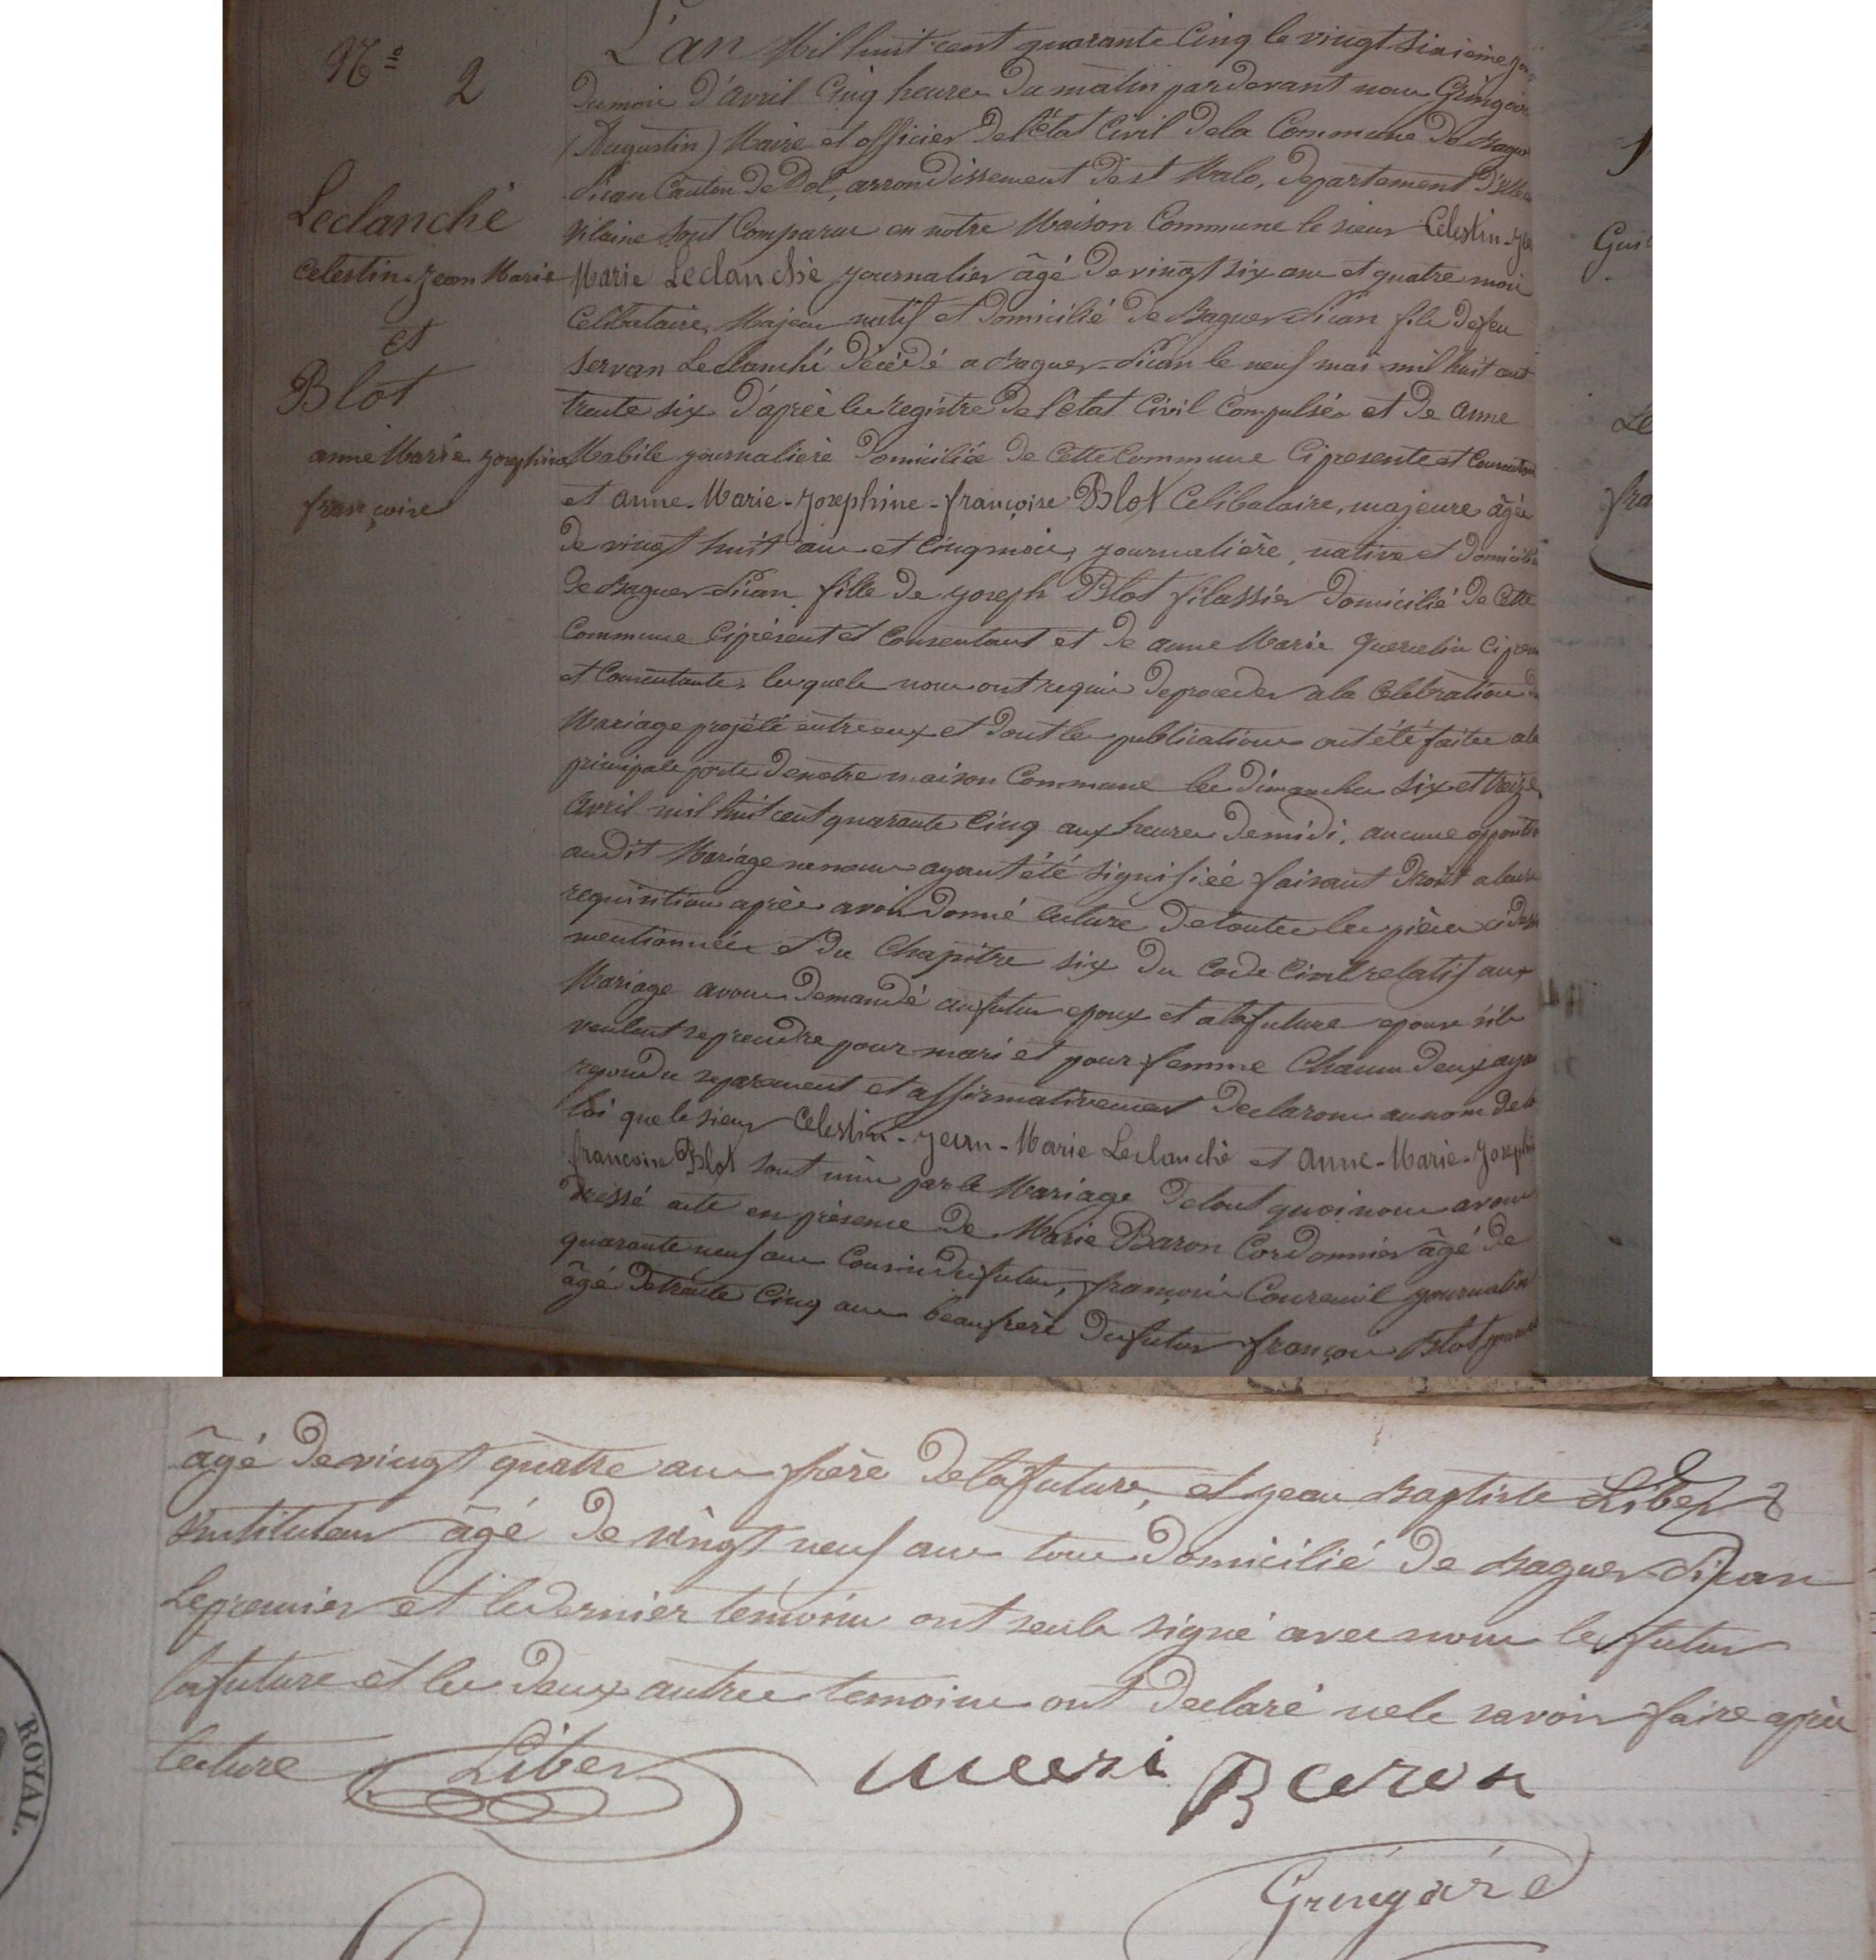 N.º 2
Leclanché
Celestin-Jean Marie
et
Blot
anne Marie Josephine
françoise
L'an Mil huit cent quarante Cinq le vingt sixieme
Du mois D'avril Cinq heures Du matin pardevant nous Gringoire
(Augustin) Maire et officier De l'état Civil Dela Commune De Baguer
Pican Canton De Dol, arrondissement De st Malo, Departement D'Ille et
Vilaine sont Comparus en notre Maison Commune le sieur Celestin-Jean
Marie Leclanché journalier âgé De vingt six ans et quatre mois
Celibataire, Majeur natif et Domicilié De Baguer-Pican fils De feu
servan Leclanché Décédé a Baguer-Pican le neuf mai mil huit cent
trente six D'après les registres De l'état Civil Compulsés et De anne
Mabile journalière Domiciliée De Cette Commune Ci presente et Consentante
et anne-Marie-Josephine-françoise Blot Celibataire, majeure âgée
De vingt huit ans et Cinq mois, journalière, native et Domiciliée
De Baguer-Pican fille De joseph Blot filassier Domicilié De Cette
Commune Ci présent et Consentant et De anne Marie Guerelin Ci presente
et Consentante, lesquels nous ont requis De proceder a la Celebration Du
Mariage projété entre eux et Dont les publications ont été faites a la
principale porte De notre maison Commune les Dimanches six et treize
avril mil huit cent quarante Cinq aux heures De midi, aucune opposition
audit Mariage ne nous ayant été signifiée faisant Droit a leurs
requisitions après avoir Donné lecture De toutes les pièces ci Dessus
mentionnées et Du Chapitre six Du Code Civil relatif aux
Mariage avons Demandé au futur epoux et a la future epouse s'ils
veulent se prendre pour mari et pour femme Chacun D'eux ayant
repondu separement et affirmativement Declarons au nom De la
loi que le sieur Celestin-Jean-Marie Leclanché et anne-Marie-Josephine
françoise Blot sont unis par le Mariage De tout quoi nous avons
Dressé acte en présence De Marie Baron Cordonnier âgé De
quarante neuf ans Cousin Du futur, françois Coureuil journalier
âgé De trente Cinq ans beaufrère Du futur françois Blot
âgé De vingt quatre ans frère De la future, et jean Baptiste Liber
instituteur âgé De vingt neuf ans tous Domicilié De Baguer-Pican
Le premier et le Dernier témoins ont seuls signé avec nous le futur
la future et les Deux autres temoins ont Declaré ne le savoir faire après
lecture Liber Meari Baron
Gringoire
ROYAL.